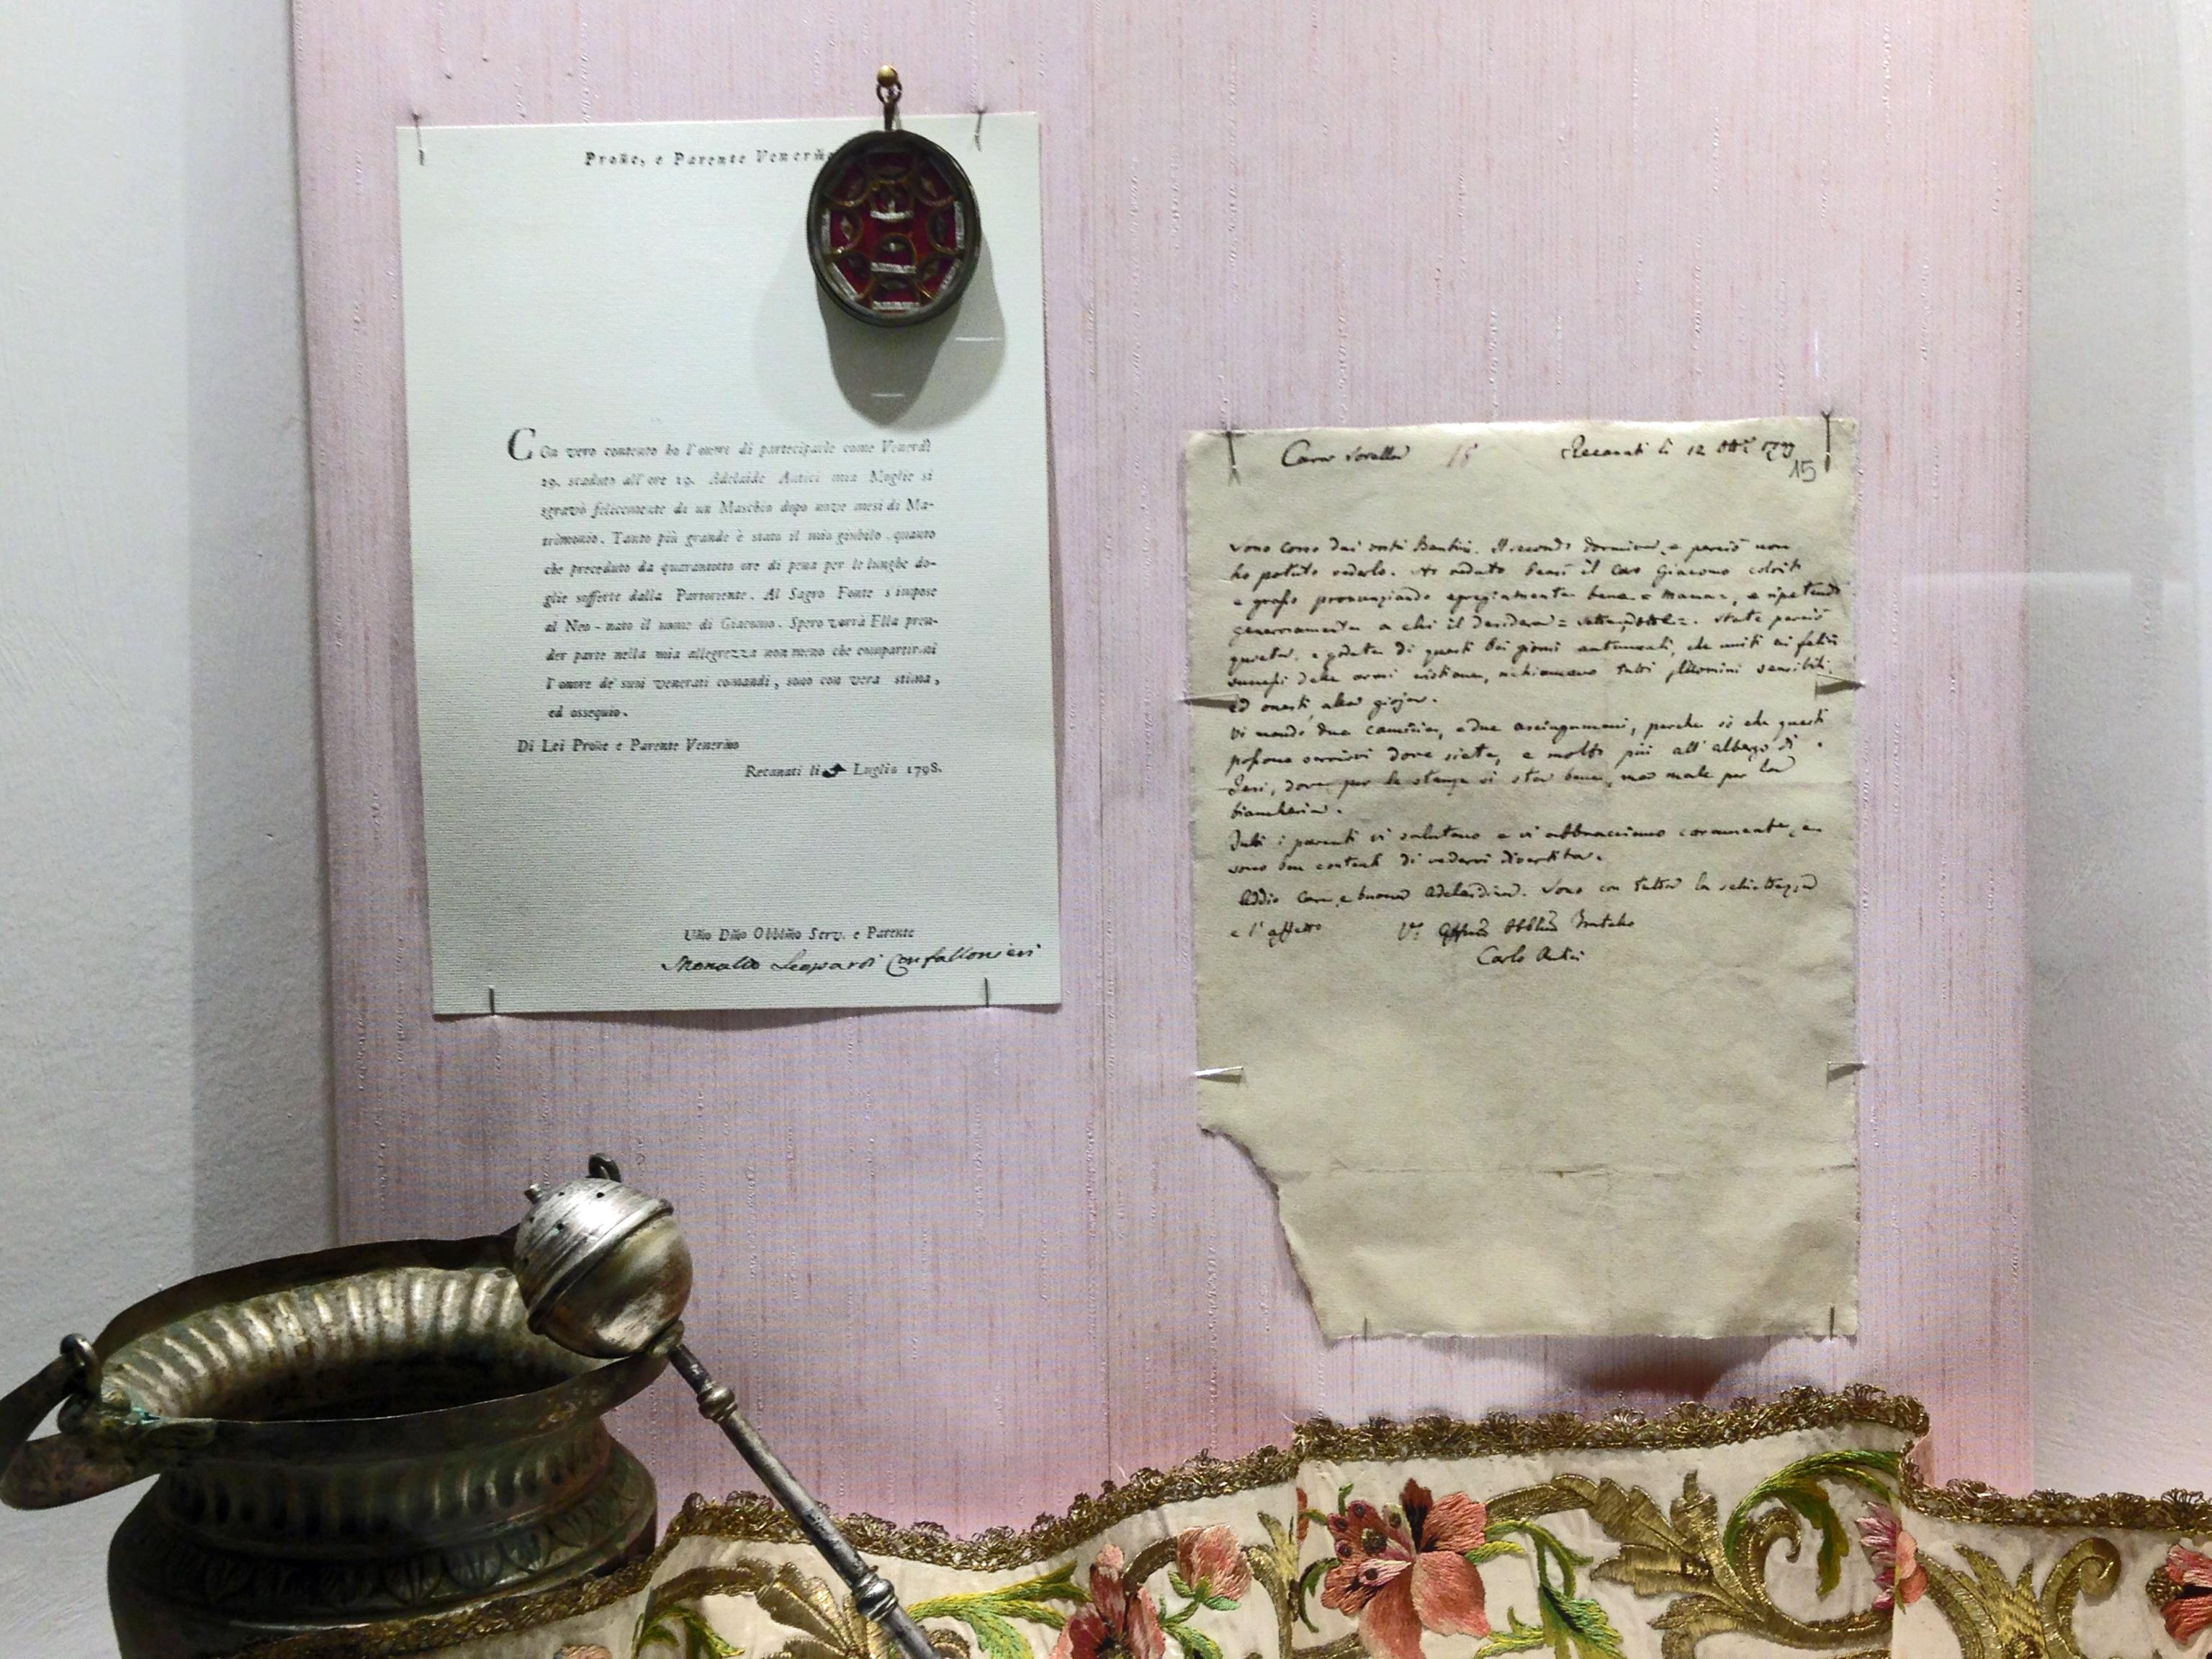 Proñe, e Parente Venerm̃o
COn vero contento ho l'onore di partecipacle come Venerdì
29. scaduto all'ore 19. Adelaide Antici mia Moglie si
sgravò felicemente di un Maschio dopo nove mesi di Ma-
trimonio. Tanto più grande è stato il mio giubilo quanto
che preceduto da quarantotto ore di pena per le lunghe do-
glie sofferte dalla Partoriente. Al Sagro Fonte s'impose
al Neo-nato il nome di Giacomo. Spero vorrà Ella pren-
der parte nella mia allegrezza non meno che compartirmi
l'onore de' suoi venerati comandi, sono con vera stima,
ed ossequio.
Di Lei Proñe e Parente Venerm̃o
Recanati li Luglio 1798.
Um̃o Dm̃o Obblm̃o Serv. e Parente
Monaldo Leopardi Confalonieri
Cara Sorella 18 Recanati li 12 1799
15
Sono corso dai vostri Bambini. Il secondo dormiva, e perciò non
ho potuto vederlo. Ho veduto bensì il caro Giacomo colorito
e grasso pronunziando egregiamente bene = Mama=, e ripetendo
generosamente a chi il desidera = = . State perciò
quieta, e godete di questi bei giorni autunnali, che uniti ai felici
successi delle armi cristiane, richiamano tutti gli Uomini sensibili,
ed onesti, alla gioja.
Vi mando due camicie, e due asciugamani, perchè sò che questi
possono servirvi dove siete, e molto più all'albergo di
Jesi, dove per le stanze si sta bene, ma male per la
biancheria.
Tutti i parenti vi salutano e vi abbracciano caramente, e
sono ben contenti di vedervi divertita.
Addio cara, e buona Adelaidina. Sono con tutta la schiettezza
e l'affetto Vr̃o Obblm̃o Fratello
Carlo Antici